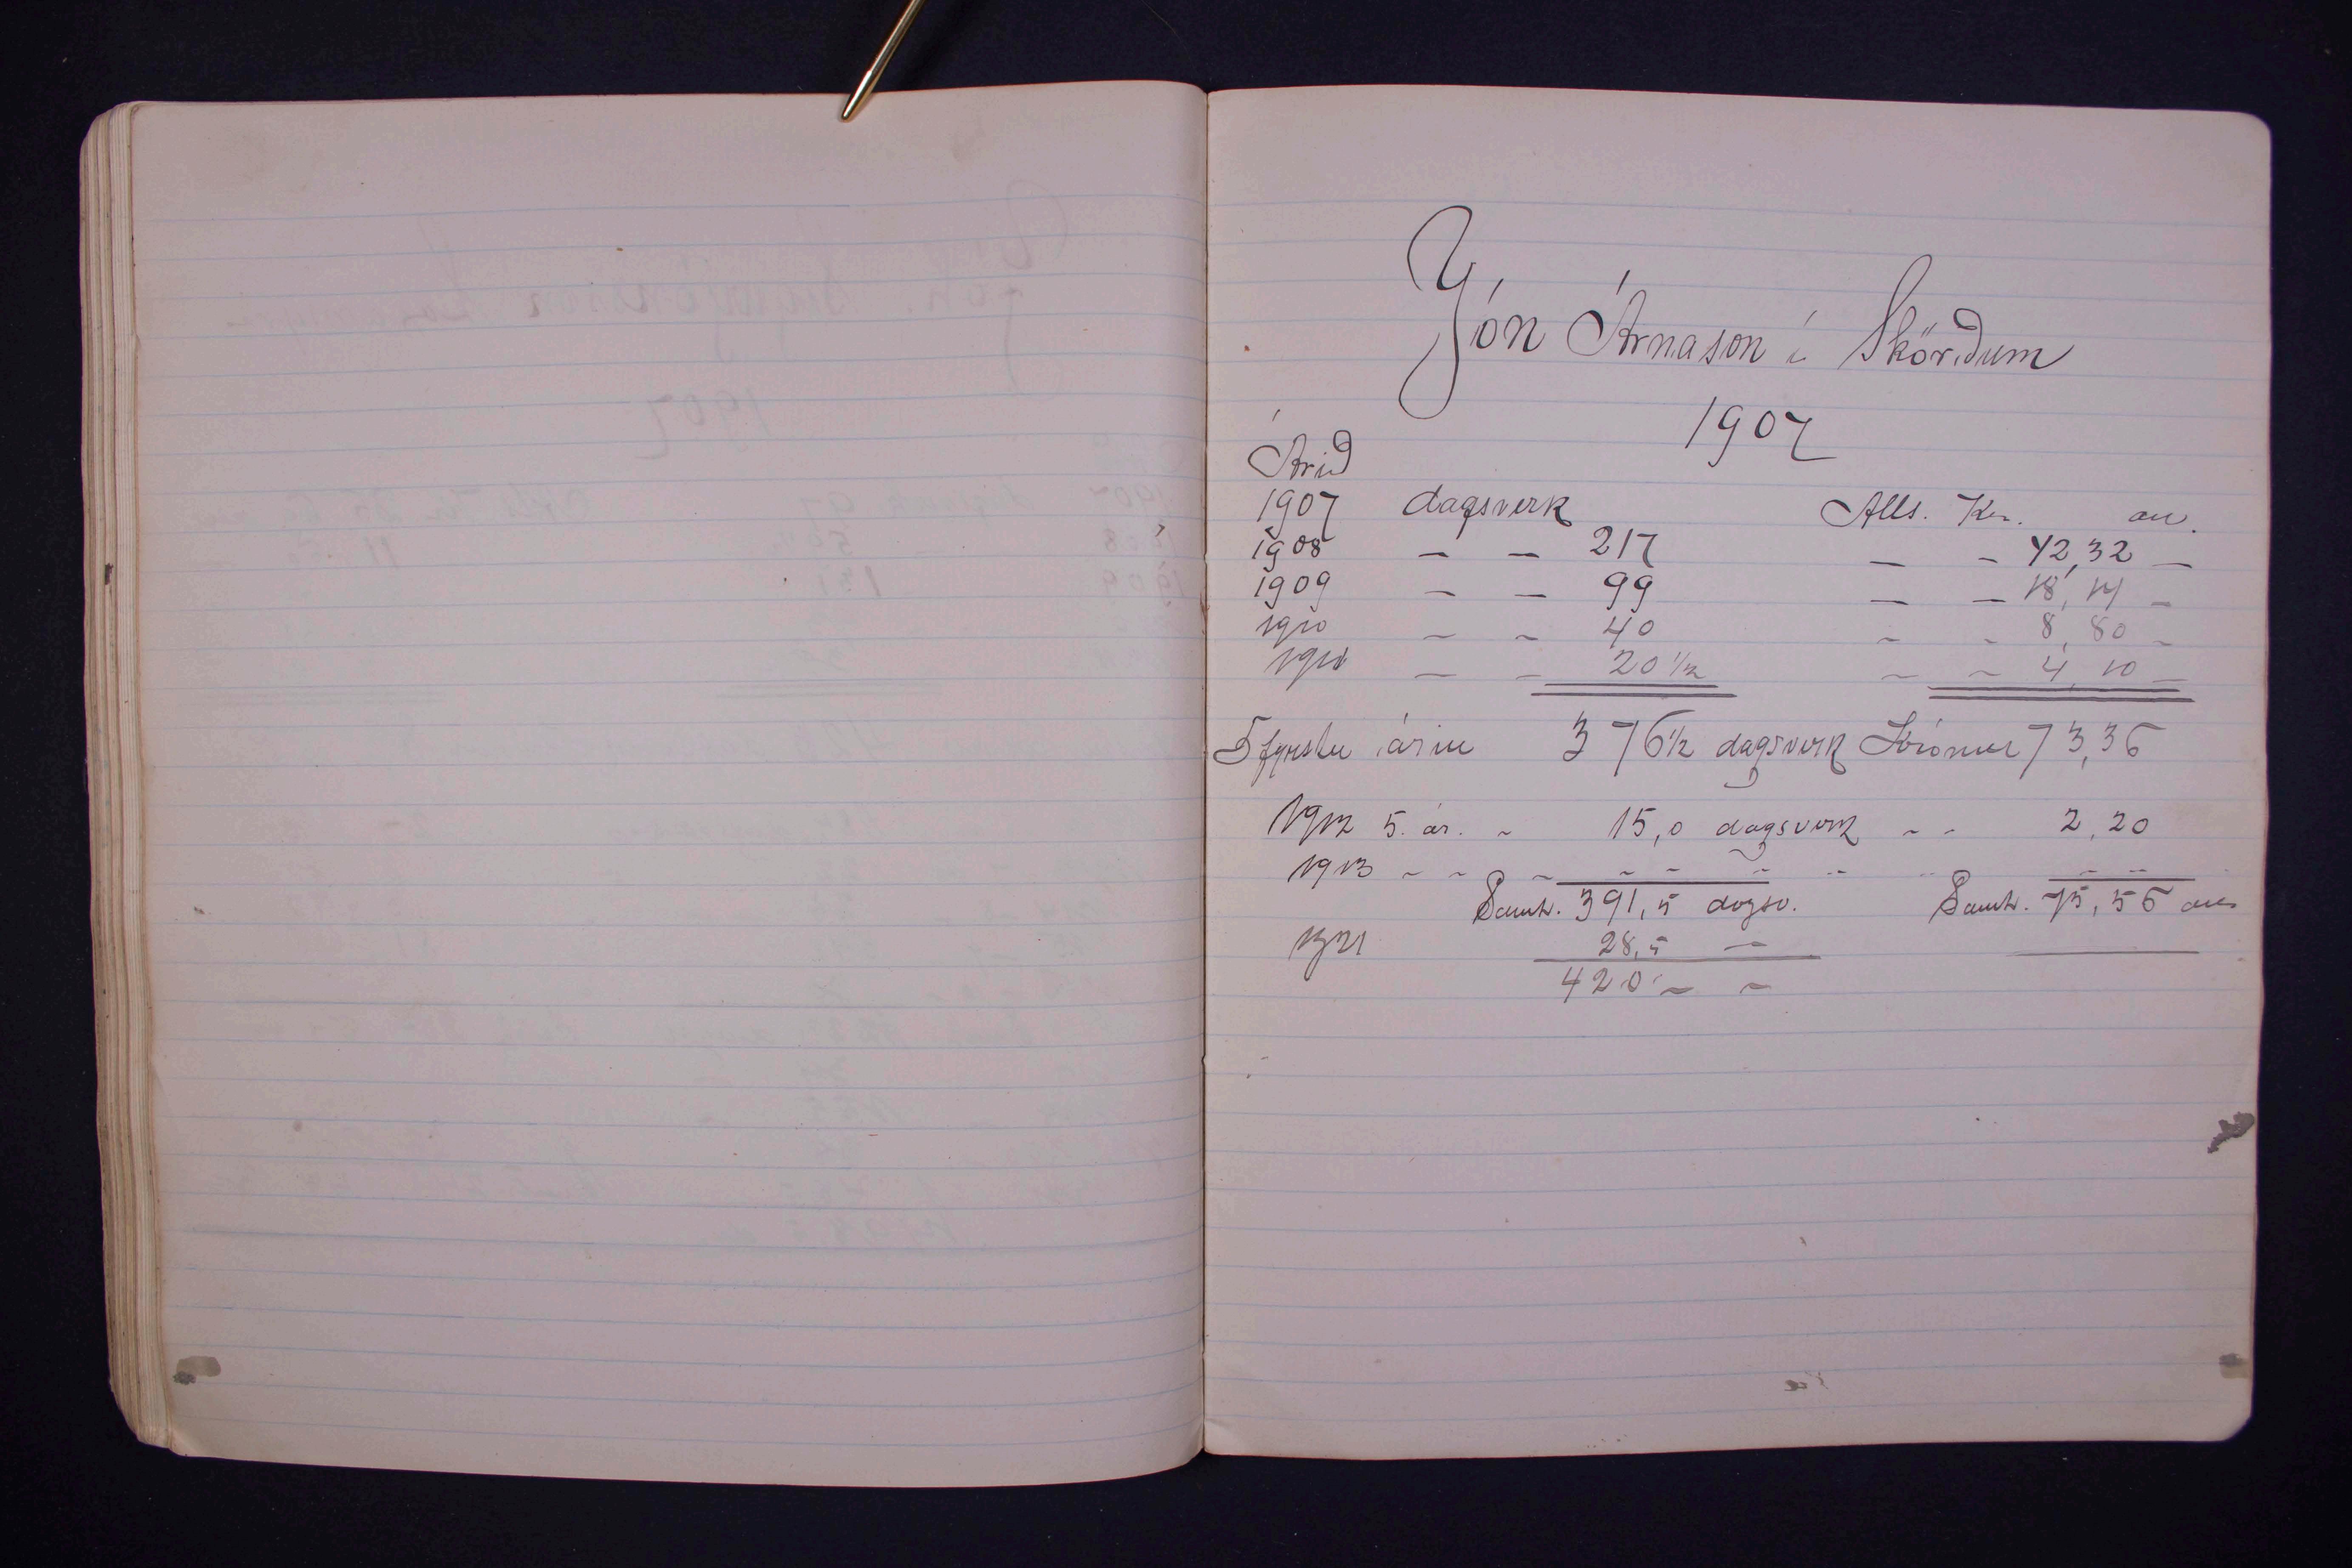 Jón Árnason í Skörðum
1907
Árið
1907 dagsverk Alls. Kr. au.
1908 — — 217 — - 42,32 —
1909 — — 99 — — 18,14 -
1910 - - 40 - - 8,80 -
1911 — - 20 1/2 - - 4,10 —
5 fyrstu árin 376 1/2 dagsverk Krónur 73,36
1912 5. ár. - 15,0 dagsverk - - 2,20
1913 - - - - - - - - - -
Samt. 391,5 dagsv. Samt. 75,56 au
1921 28,5 —
420 - -